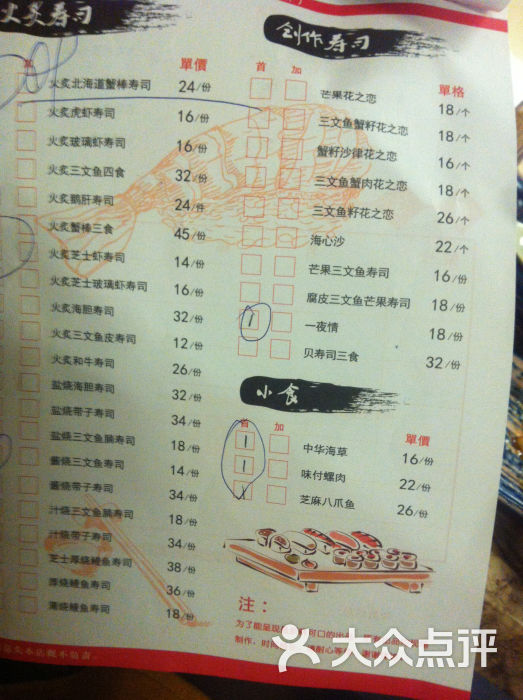 火炙寿司
加 單價
火炙北海道蟹棒寿司 24/份
火炙虎虾寿司 16/份
火炙玻璃虾寿司 16/份
火炙三文鱼四食 32/份
火炙鹅肝寿司 24/件
火炙蟹棒三食 45/份
火炙芝士虾寿司 14/份
火炙芝士玻璃虾寿司 16/份
火炙海胆寿司 32/份
火炙三文鱼皮寿司 12/份
火炙和牛寿司 26/份
盐烧海胆寿司 32/份
盐烧带子寿司 34/份
盐烧三文鱼腩寿司 18/份
酱烧三文鱼寿司 14/份
酱烧带子寿司 34/份
汁烧三文鱼腩寿司 18/份
汁烧带子寿司 34/份
芝士厚烧鳗鱼寿司 38/份
厚烧鳗鱼寿司 36/份
薄烧鳗鱼寿司 18/份
创作寿司
首 加 單格
芒果花之恋 18/个
三文鱼蟹籽花之恋 18/个
蟹籽沙律花之恋 16/个
三文鱼蟹肉花之恋 18/个
三文鱼籽花之恋 26/个
海心沙 22/个
芒果三文鱼寿司 16/份
腐皮三文鱼芒果寿司 18/份
1 一夜情 18/份
贝寿司三食 32/份
小食
首 加 單價
1 中华海草 16/份
1 味付螺肉 22/份
1 芝麻八爪鱼 26/份
注：
为了能呈现 可口的出
制作，时 耐心等
大众点评